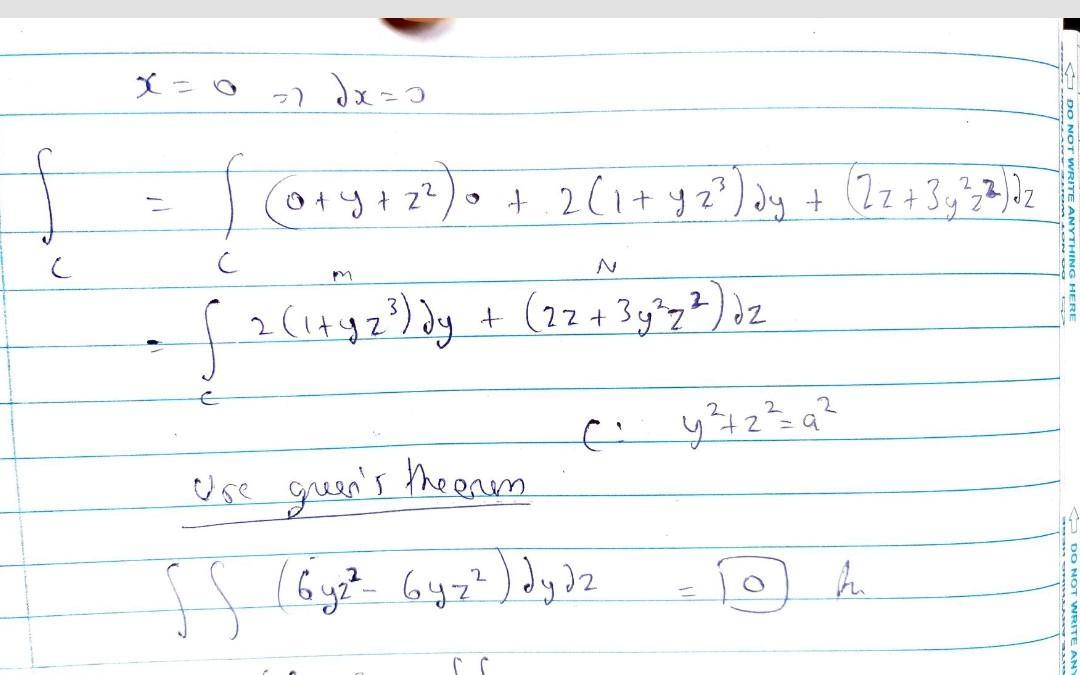 x = 0 => dx = 0
∫_C = ∫_C (0 + y + z²) 0 + 2(1 + yz³) dy + (2z + 3y²z²) dz
M N
= ∫_C 2(1 + yz³) dy + (2z + 3y²z²) dz
C: y² + z² = a²
Use green's theorem
∫∫ (6yz² - 6yz²) dy dz = 0
DO NOT WRITE ANYTHING HERE
DO NOT WRITE AN